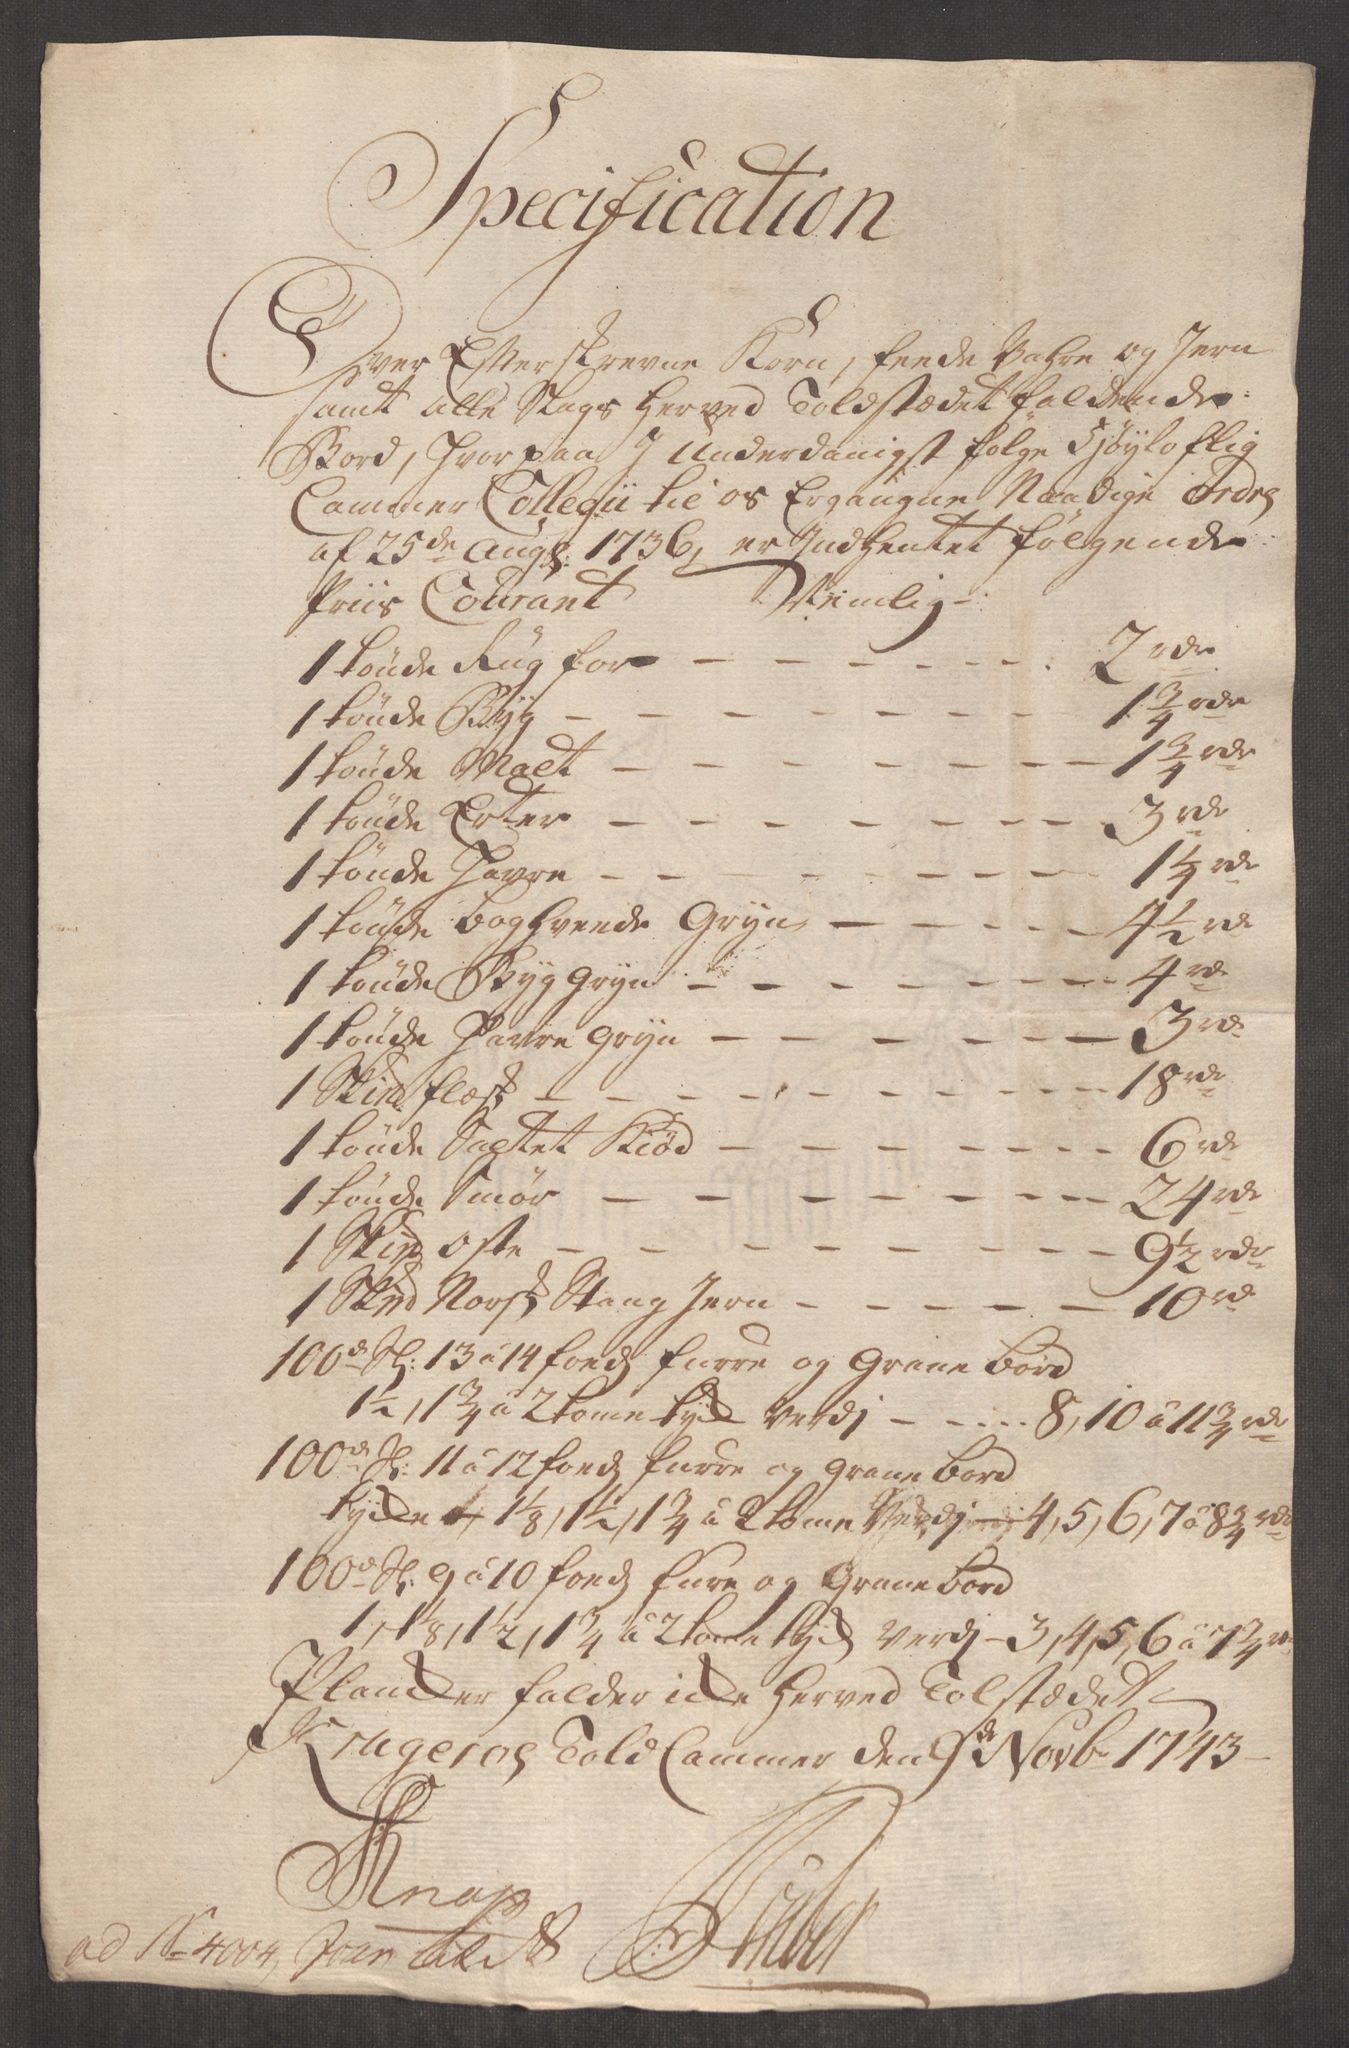 Specification
Over Efterskrevne Korn, feede Vahre og Jern
samt alle Slags herved Toldstædet faldende
Bord, hvorpaa J underdanigst følge Høyloflig
Cammer Collegii til os Ergangne Naadige Ordre
af 25de Aug: 1736, er Indhentet følgende
Priis Courant Nemlig
1 tønde Rug for - - - - - - - 2 rdr
1 tønde Byg - - - - - - - 1 3/4 rdr
1 tønde Malt - - - - - - - 1 3/4 rdr
1 tønde Erter - - - - - - - 3 rdr
1 tønde Havre - - - - - - - rdr
1 tønde boghvende Gryn - - - - 4 1/2 rdr
1 tønde Byggryn - - - - - - - 4 rdr
1 tønde Havre gryn - - - - - - 3 rdr
1 Skird flesk - - - - - - - - 18 rdr
1 tønde Saltet Kiød - - - - - - 6 rdr
1 tønde Smør - - - - - - - 24 rdr
1 Skird oste - - - - - - - 9 1/2 rdr
1 Skird Norsk Stang Jern - - - - - 10 rdr
100de st: 13 à 14 foeds furre og Grane bord
1 1/2, 1 3/4 à 2 tome tyk verdj - - - 8, 10 à 11 3/4 rdr
100de st: 11 à 12 foeds furre og Grane bord
tykke 1, 1 1/8, 1 1/2, 1 3/4 à 2 tome Verdj - 4, 5, 6, 7 à 8 3/4 rdr
100de st: 9 à 10 foeds fure og Grane bord
1, 1 1/8, 1 1/2, 1 3/4 à 2 tome tyk verdj - 3, 4, 5, 6 à 7 3/4 rdr
Plancker falder icke herved Tolstædet
Krageröe Told Cammer den 9de Novb 1743
Knap
ad No 4004,